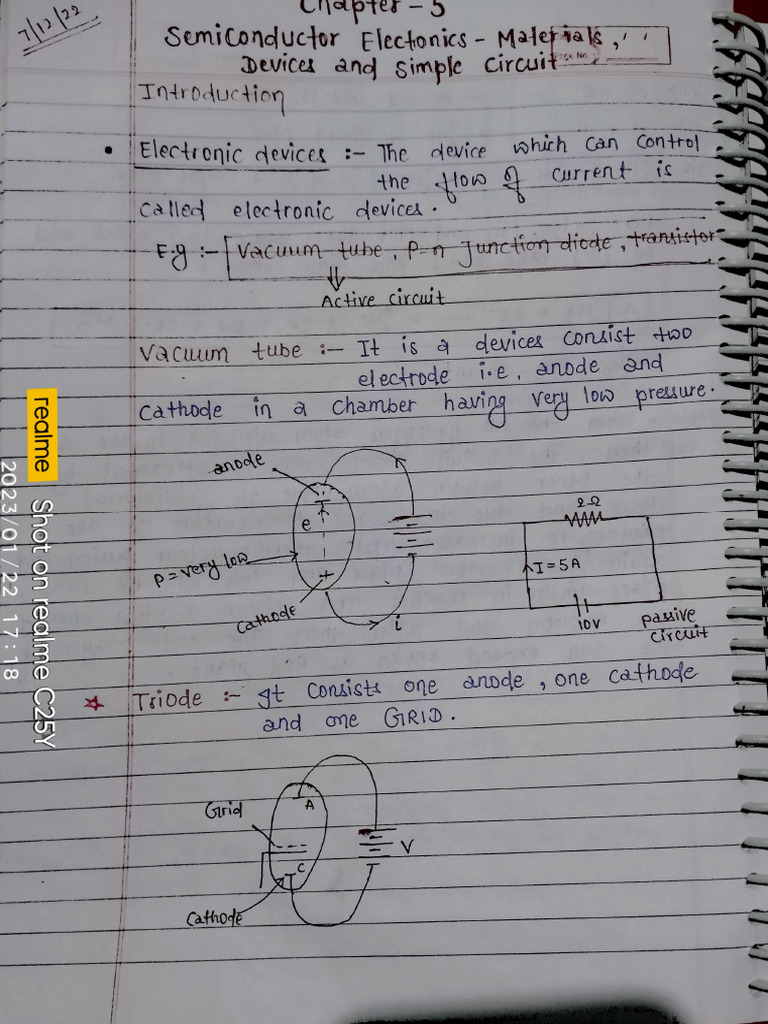 7/12/22
Chapter - 5
Semiconductor Electonics - Materials,
Devices and Simple Circuit
Introduction
• Electronic devices :- The device which can control
the flow of current is
called electronic devices.
E.g :- Vacuum tube, P-n Junction diode, transistor
Active circuit
Vacuum tube :- It is a devices consist two
electrode i.e, anode and
cathode in a chamber having very low pressure.
anode
e
P = very low
cathode
i
2Ω
I = 5A
10V
passive
circuit
Triode :- It consists one anode, one cathode
and one GRID.
Grid
A
V
C
Cathode
realme Shot on realme C25Y
2023/01/22 17:18